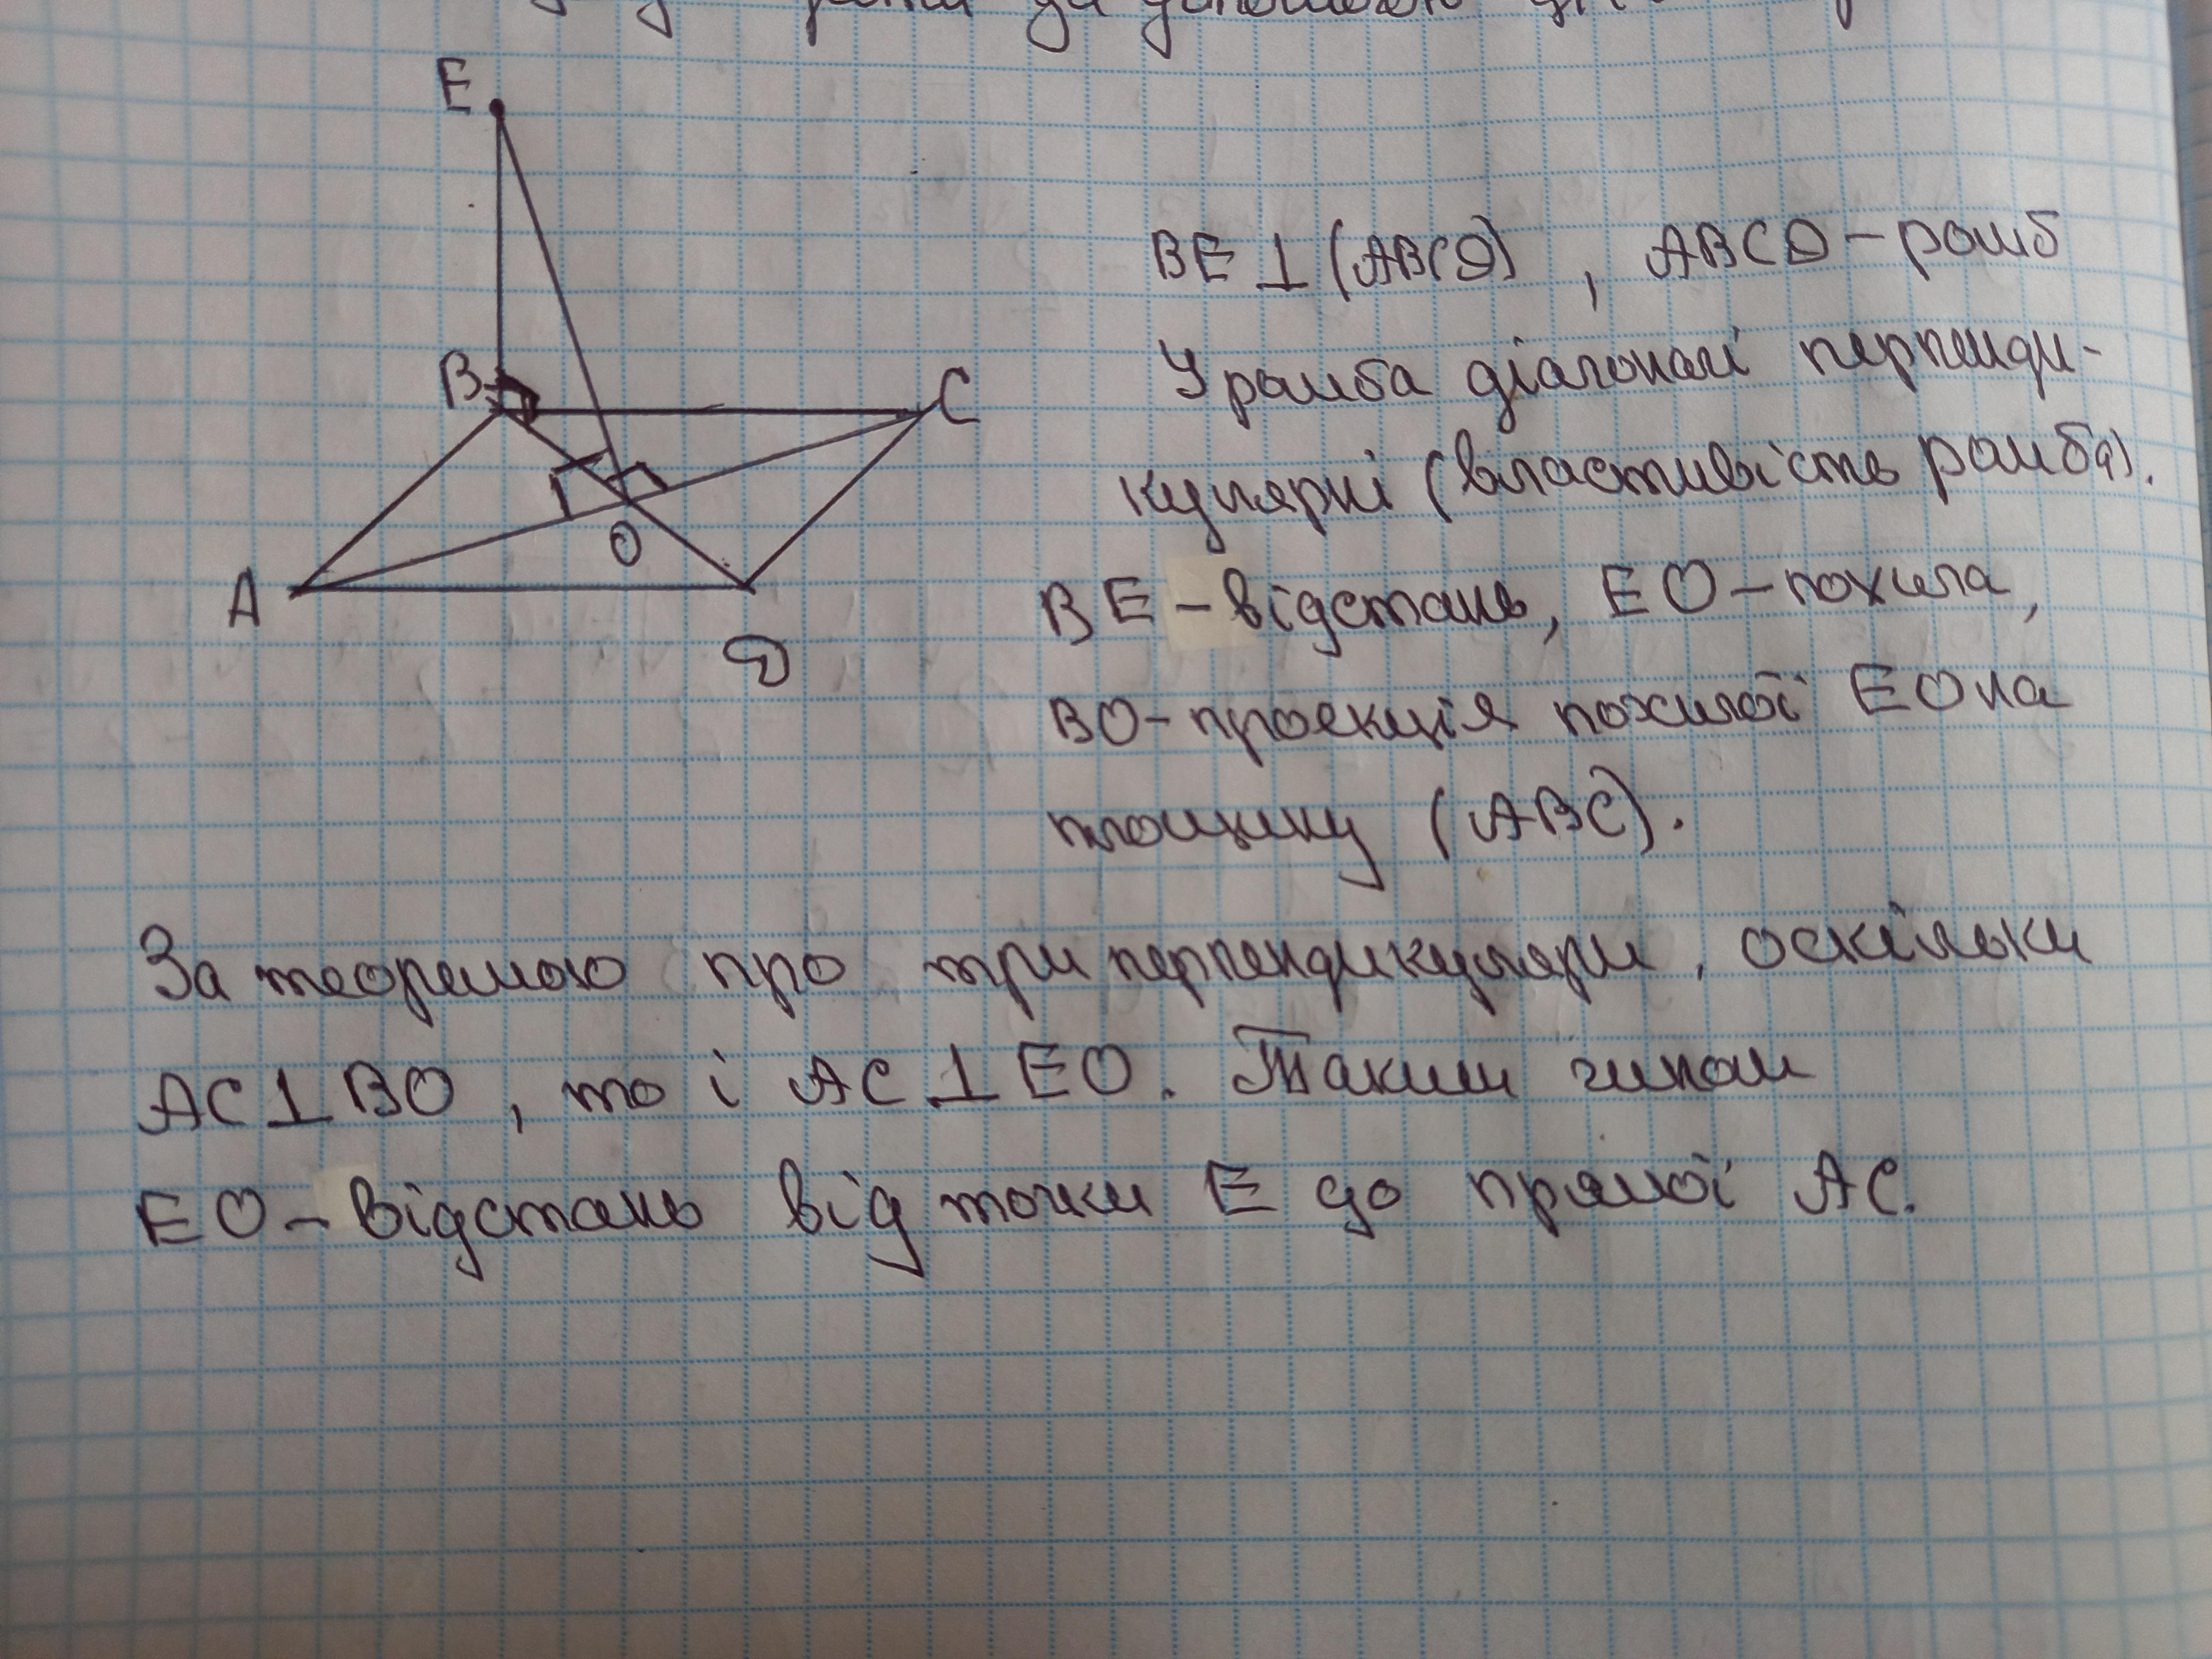 за допомогою
E
B
C
O
A
D
BE ⊥ (ABCD), ABCD – ромб
У ромба діагоналі перпенди-
кулярні (властивість ромба).
BE – відстань, EO – похила,
BO – проекція похилої EO на
площину (ABC).
За теоремою про три перпендикуляри, оскільки
AC ⊥ BO, то і AC ⊥ EO. Таким чином
EO – відстань від точки E до прямої AC.